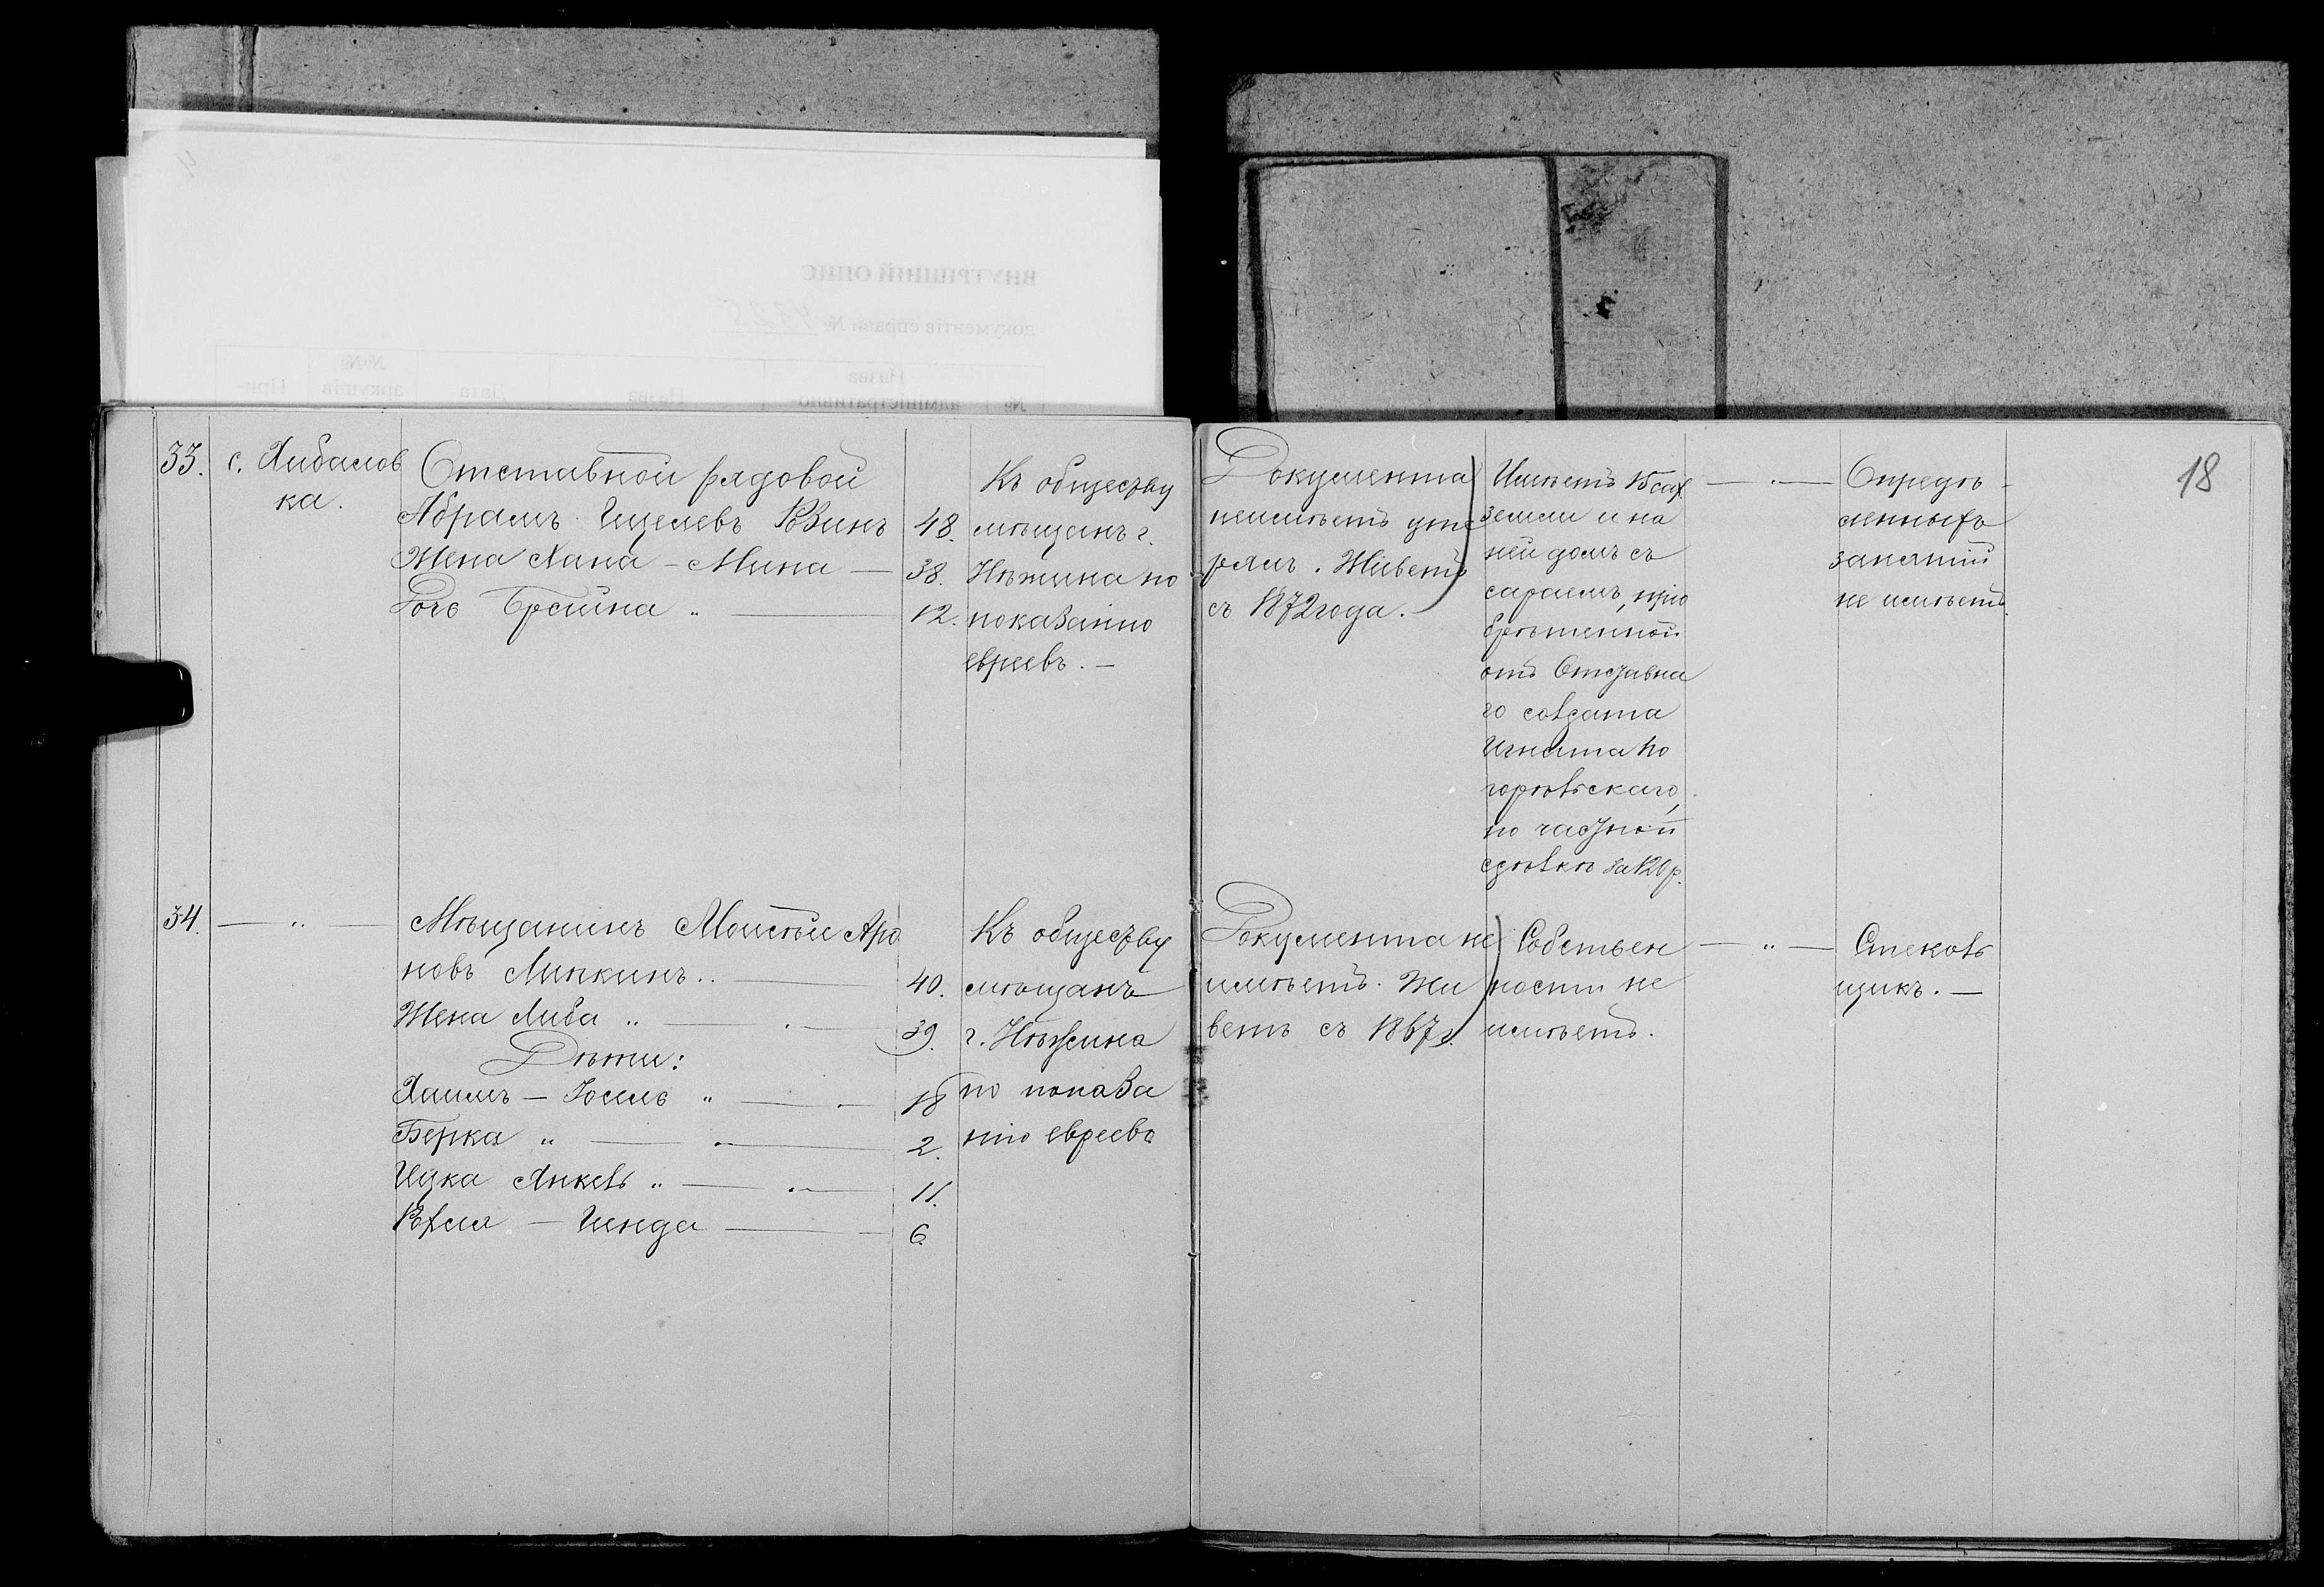 ВНУТРІШНІЙ ОПИС
документів справи № 4725
№
Назва
адміністративно-
Назва
Дата
№№
аркушів
При-
18
33.
с. Хибалов
ка.
Отставной рядовой
Абрамъ Ицелевъ
48.
Жена Хана - Мина —
38.
Дочь Брейна „ —
12.
Къ обществу
мѣщанъ г.
Нѣжина по
показанію
евреевъ. —
Документа
неимѣетъ уте
рялъ. Живетъ
съ 1872 года.
Имѣетъ 15 саж.
земли и на
ней домъ съ
сараемъ, прiо
брѣтенной
отъ Отставна
го солдата
Игната По
горѣльскаго,
по частной
сдѣлкѣ за 120 р.
— „ —
Опредѣ-
ленныхъ
занятій
не имѣетъ.
34.
— „ —
Мѣщанинъ Моисей Аро
новъ Липкинъ „ —
40.
Жена Либа „ — „ —
39.
Дѣти:
Хаимъ — Іосель „ — „
18
Берка „ — „ —
2.
Ицка Янкель „ — „ —
11.
— Гинда —
6.
Къ обществу
мѣщанъ
г. Нѣжина
по показа
нію евреевъ
Документа не
имѣетъ. Жи
ветъ съ 1867 г.
Собствен
ности не
имѣетъ.
— „ —
Стеколь
щикъ. —